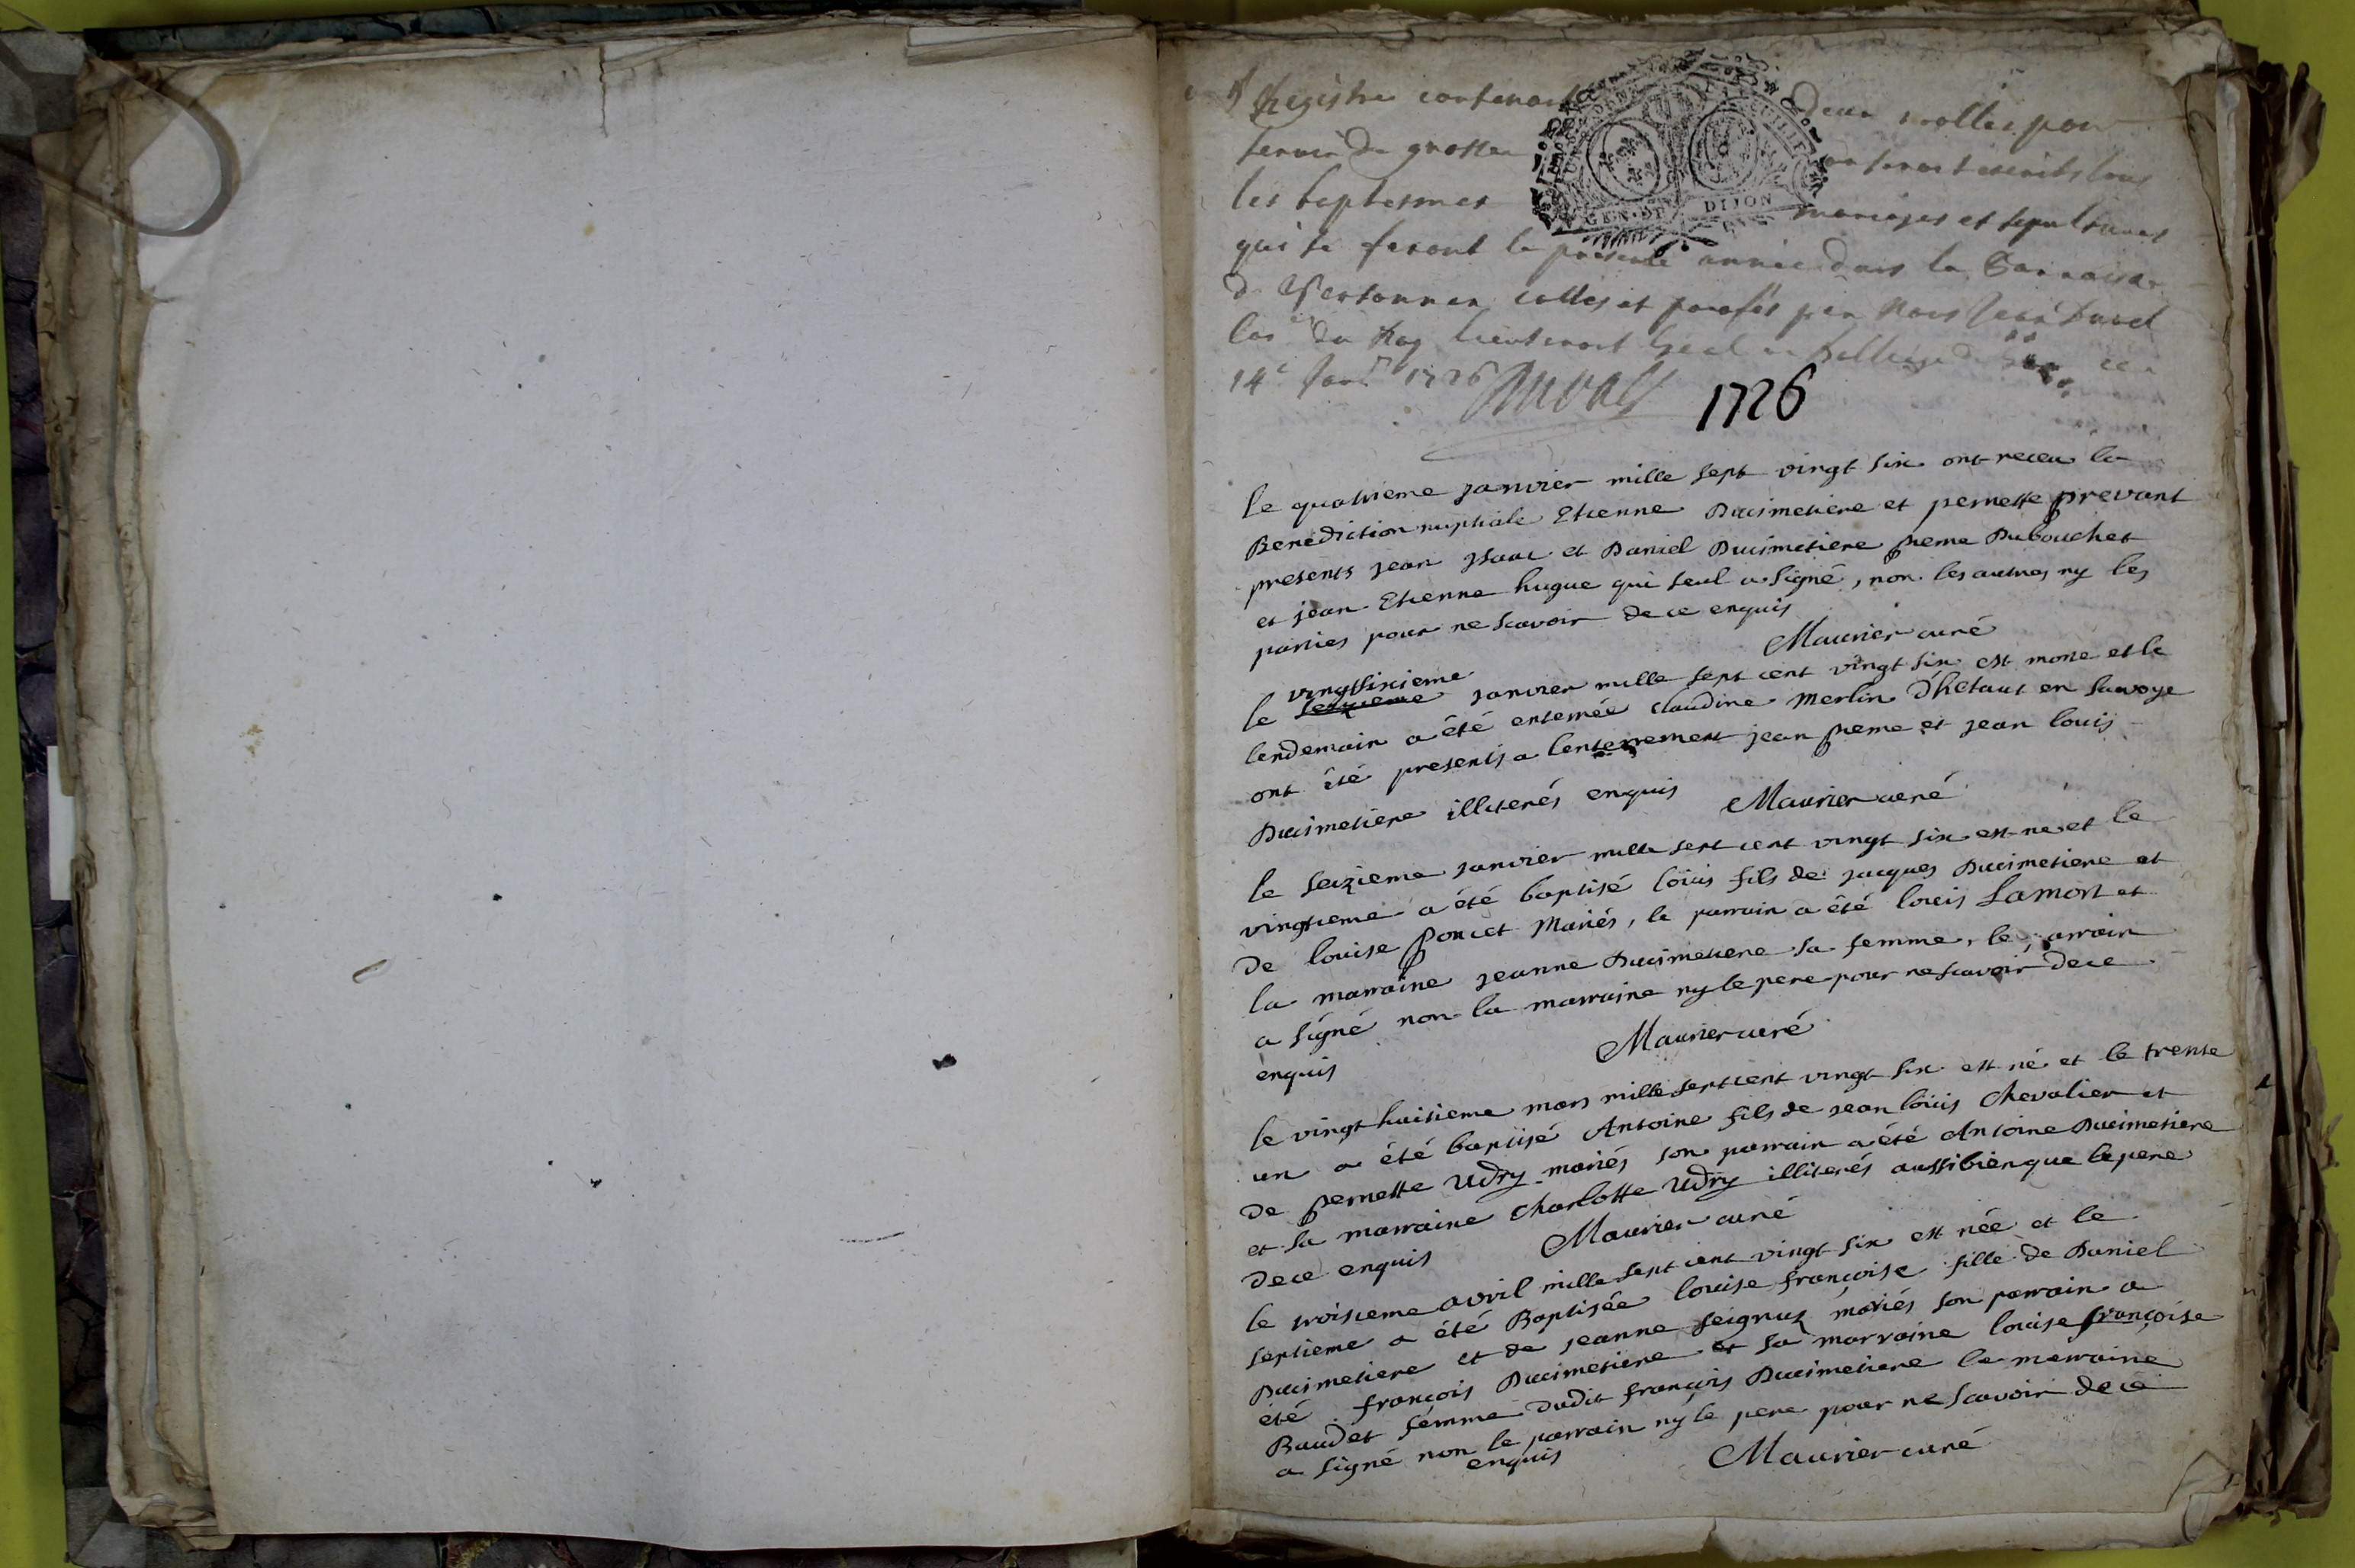 Registre contenant deux rolles pour
servir de grosse ou seront escrits tous
les baptesmes mariages et sepultures
qui se feront la presente année dans la Parroisse
de Versonnex cottés et parafés par Nous
du Roy Lieutenant ce
14e Janr 1726
GEN. DE DIJON
1726
le quatrieme janvier mille sept vingt six ont receu la
Benediction nuptiale Etienne Ducimetiere et pernette prevant
presents jean jsaac et Daniel Ducimetiere pierre Dubouchet
et jean Etienne hugue qui seul a signé, non les autres ny les
parties pour ne scavoir de ce enquis
Maurier curé
vingtsixieme
le seizieme janvier mille sept cent vingt six est morte et le
lendemain a été enterrée claudine Merlin D'hetaut en savoye
ont été presents a lenterrement jean pierre et jean louis
Ducimetiere illiterés enquis Maurier curé
le seizieme janvier mille sept cent vingt six est né et le
vingtieme a été baptisé loüis fils de jacques Ducimetiere et
de louise poncet Mariés, le parrain a été loüis Lamort et
la marraine jeanne Ducimetiere sa femme, le parrain
a signé non la marraine ny le pere pour ne scavoir de ce
enquis Maurier curé
le vingt huitieme mars mille sept cent vingt six est né et le trente
un a été baptisé Antoine fils de jean loüis Chevalier et
de pernette Udry mariés son parrain a été Antoine Ducimetiere
et sa marraine Charlotte Udry illiterés aussi bien que le pere
de ce enquis Maurier curé
le troisieme avril mille sept cent vingt six est née et le
septieme a été Baptisée louise françoise fille de Daniel
Ducimetiere et de jeanne seignux mariés son parrain a
été françois Ducimetiere et sa marraine louise françoise
Baudet femme dudit françois Ducimetiere la marraine
a signé non le parrain ny le pere pour ne scavoir de ce
enquis Maurier curé